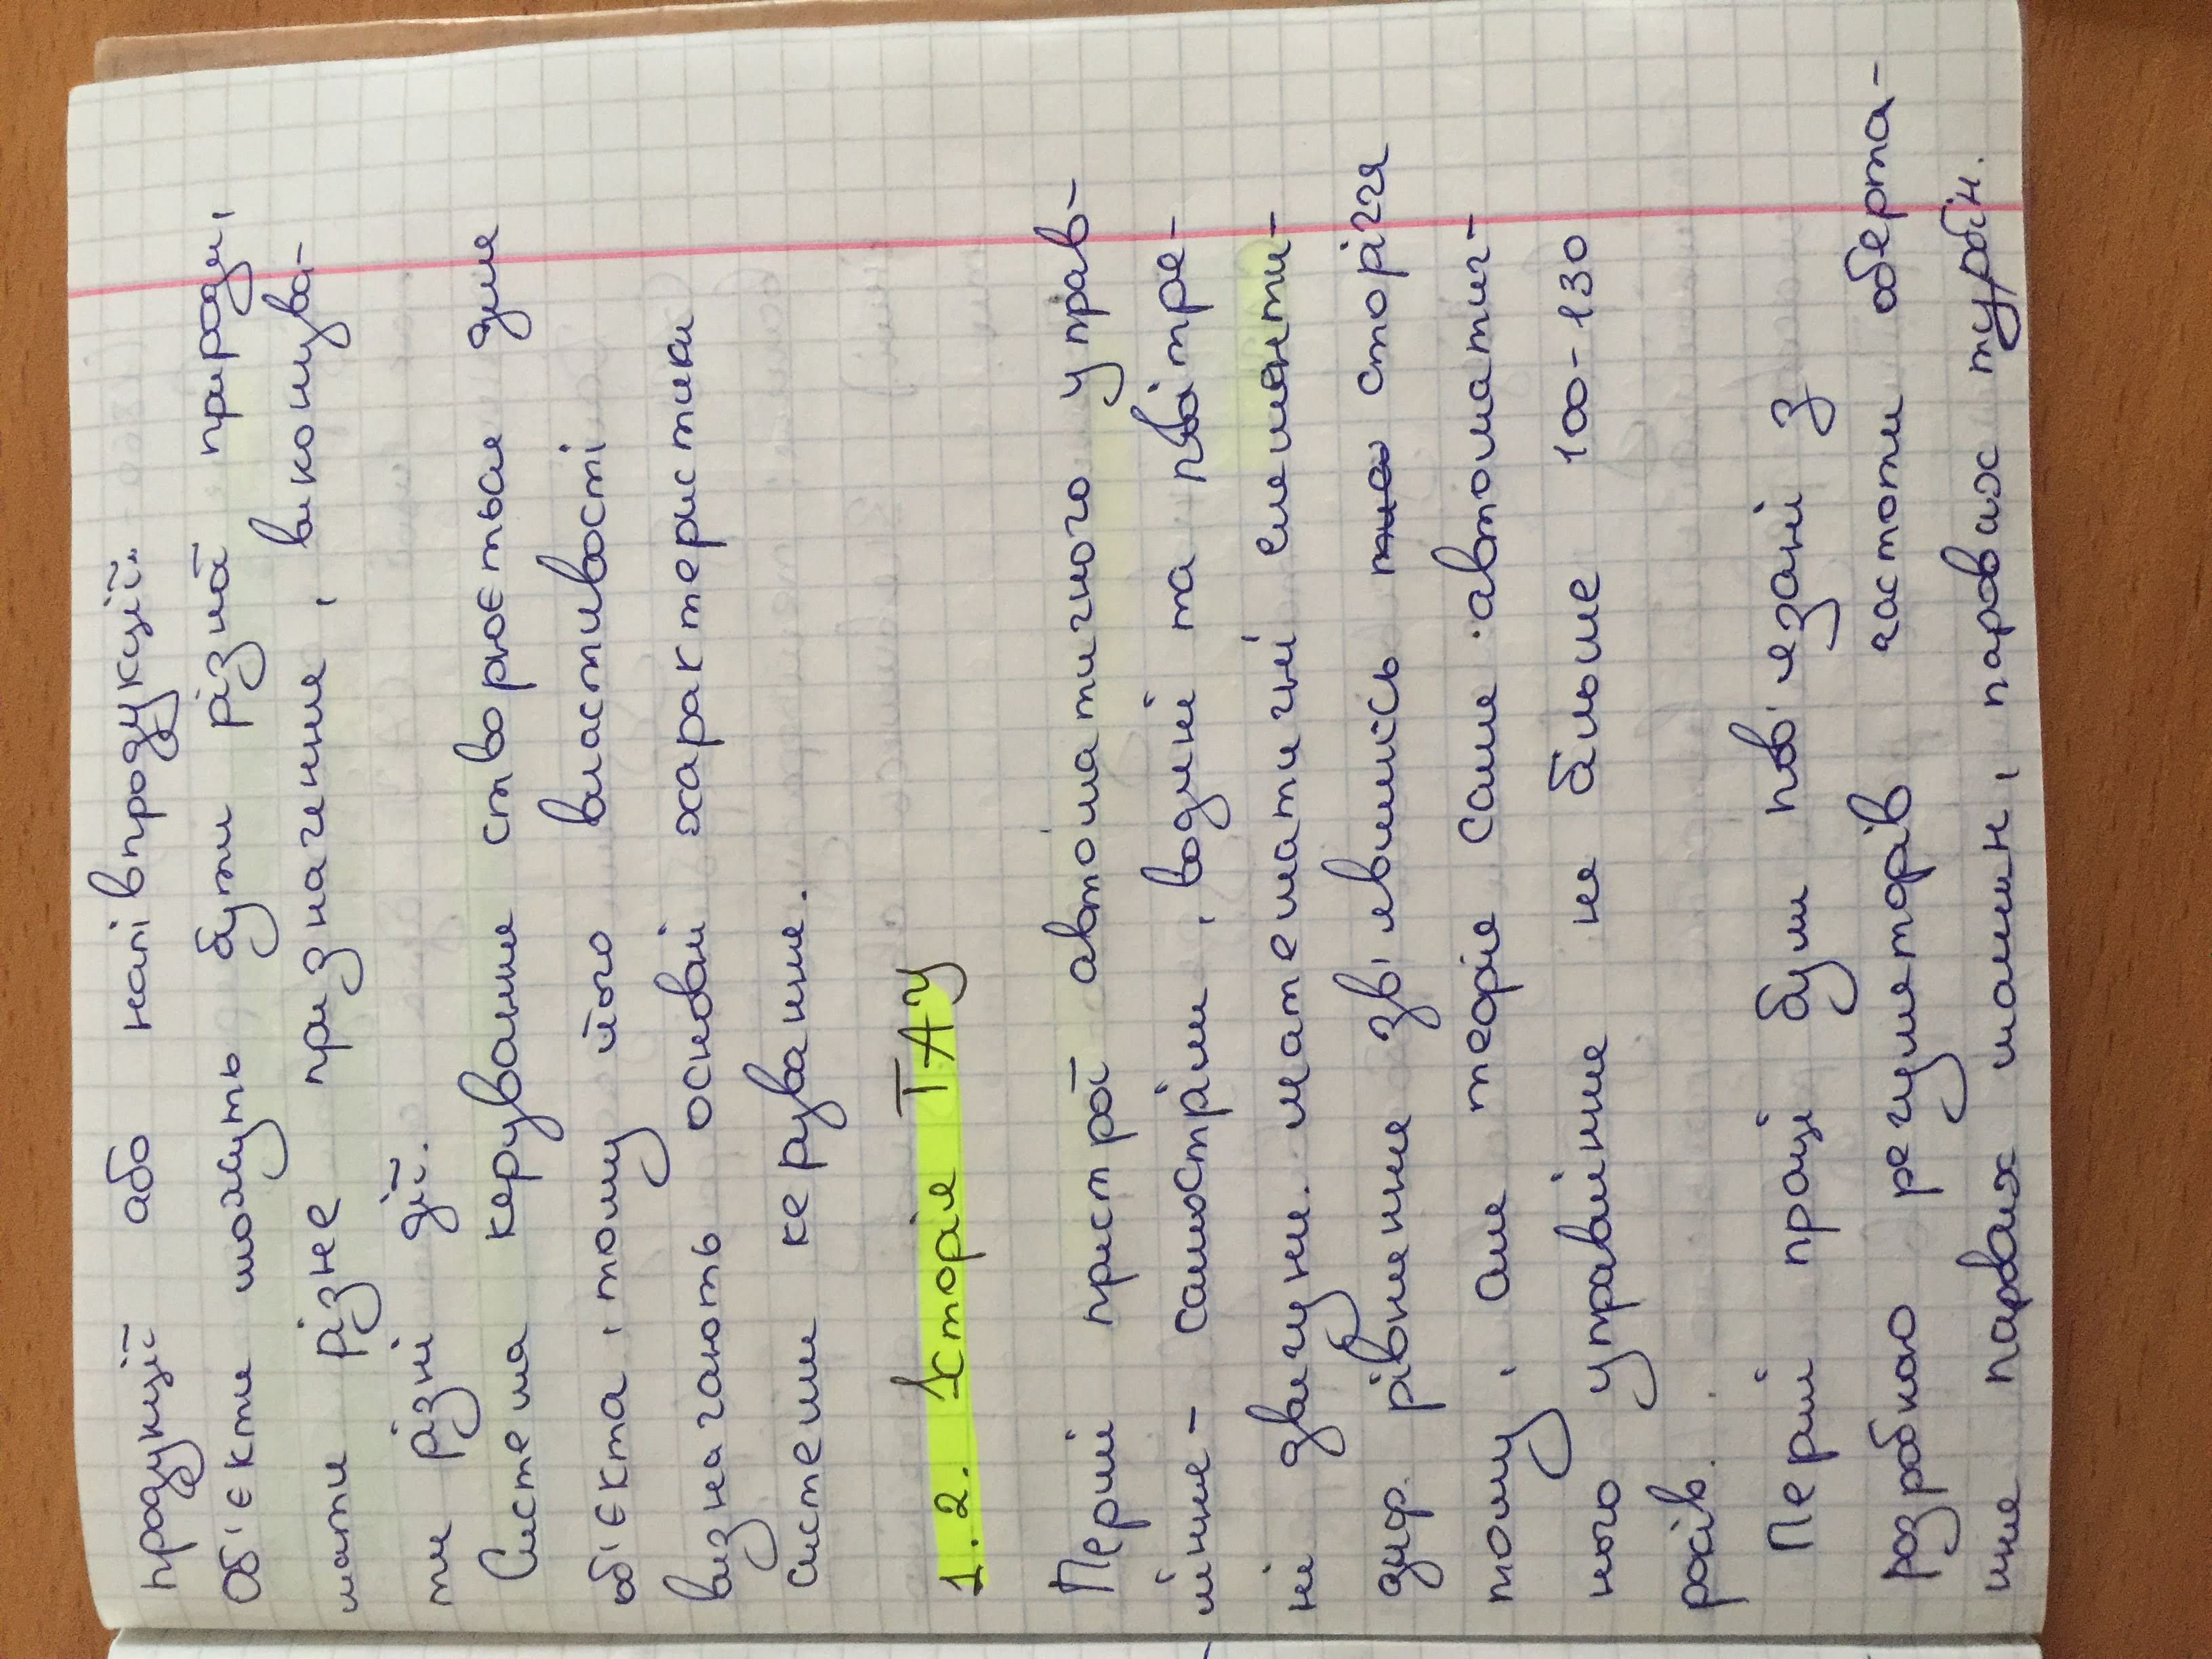 продукції або напівпродукції.
Об'єкти можуть бути різної природи,
мати різне призначення, виконува-
ти різні дії.
Система керування створюється для
об'єкта, тому його властивості
визначають основні характеристики
системи керування.
1.2. Історія ТАУ
Перші пристрої автоматичного управ-
ління - самостріли, водяні та повітря-
ні двигуни. математичні елементи-
диф. рівняння зв'явились сторіччя
тому, але теорія саме автоматич-
ного управління не більше 100-130
років.
Перші праці були пов'язані з
розробкою регуляторів частоти оберта-
ння парових машин, парових турбін.